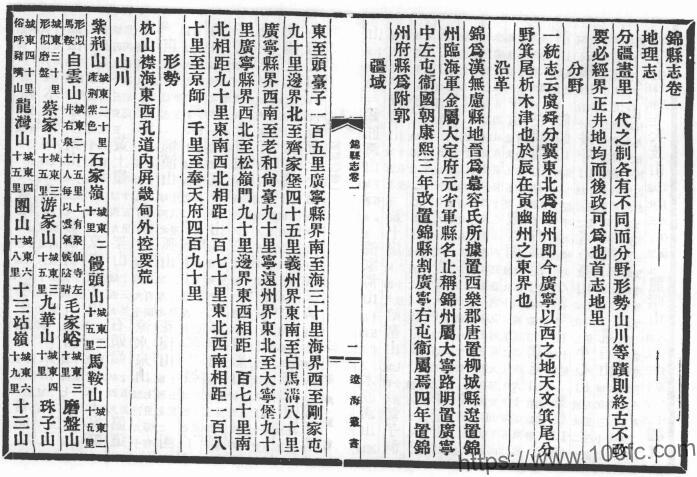 錦縣志卷一
地理志
分疆畫里一代之制各有不同而分野形勢山川等蹟則終古不改
要必經界正井地均而後政可爲也首志地里
分野
一統志云虞舜分冀東北爲幽州即今廣寧以西之地天文箕尾分
野箕尾析木津也於辰在寅幽州之東界也
沿革
錦爲漢無慮縣地晉爲慕容氏所據置西樂郡唐置柳城縣遼置錦
州臨海軍金屬大定府元省軍縣名止稱錦州屬大寧路明置廣寧
中左屯衞國朝康熙三年改置錦縣割廣寧右屯衞屬焉四年置錦
州府縣爲附郭
疆域
錦縣志卷一
一
遼海叢書
東至頭臺子一百五里廣寧縣界南至海三十里海界西至剛家屯
九十里邊界北至齊家堡四十五里義州界東南至白馬溝八十里
廣寧縣界西南至老和尙臺九十里寧遠州界東北至大寧堡九十
里廣寧縣界西北至松嶺門九十里邊界東西相距一百七十里南
北相距九十里東南西北相距一百七十里東北西南相距一百八
十里至京師一千里至奉天府四百九十里
形勢
枕山襟海東西孔道內屏畿甸外控要荒
山川
紫荆山城東二十里產荆紫色石家嶺城東二十里饅頭山城東二十五里馬鞍山城東二十五里
形似馬鞍白雲山城東二十五里上有聚仙寺左井右泉土人每以雲氣候陰晴毛家峪城東三十里磨盤山
城東三十里形似磨盤蔡家山城東三十五里游家山城東三十五里九華山城東四十里珠子山
城東四十里俗呼豬嘴山龍灣山城東四十五里團山城東六十八里十三站嶺城東六十九里十三山
https://www.106fc.com